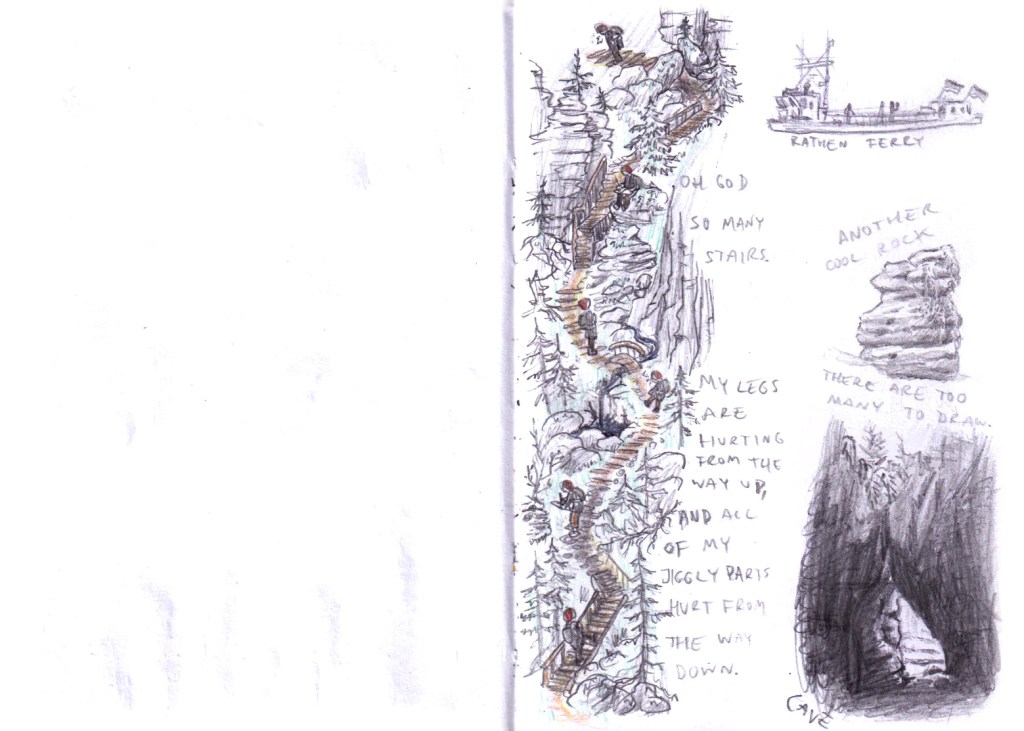 OH GOD
SO MANY
STAIRS.
MY LEGS
ARE
HURTING
FROM THE
WAY UP,
AND ALL
OF MY
JIGGLY PARTS
HURT FROM
THE WAY
DOWN.
RATHEN FERRY
ANOTHER
COOL ROCK
THERE ARE TOO
MANY TO DRAW.
CAVE